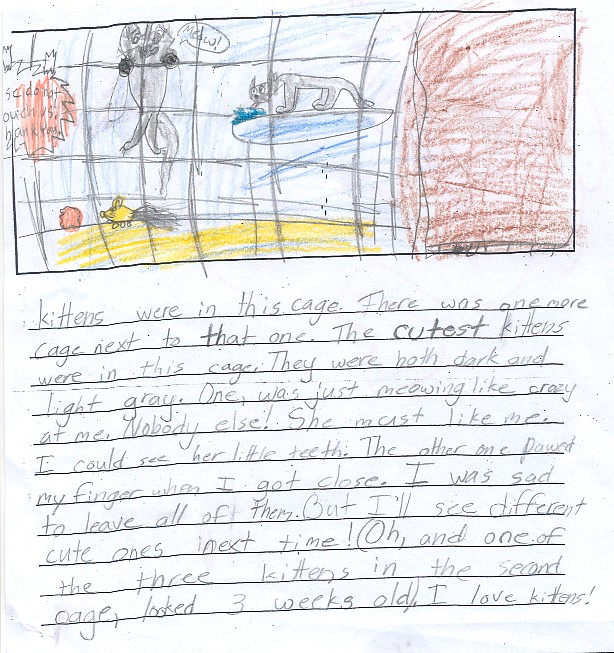 Meow!
se do not
ouch us.
hank you
kittens were in this cage. There was one more
cage next to that one. The cutest kittens
were in this cage. They were both dark and
light gray. One, was just meowing like crazy
at me. Nobody else! She must like me.
I could see her little teeth. The other one pawed
my finger when I got close. I was sad
to leave all of them. But I'll see different
cute ones next time! (Oh, and one of
the three kittens in the second
cage, looked 3 weeks old). I love kittens!